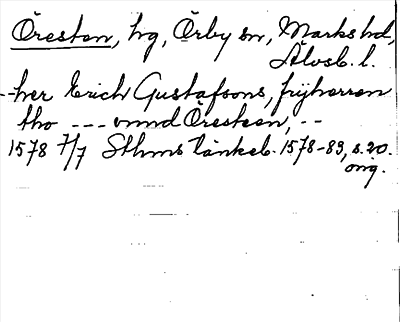 Öresten, hg, Örby sn, Marks hd,
Älvsb. l.
--her Erich Gustafsons, frijherren
tho --- vnnd Öresteen, --
1578 7/7 Sthms tänkeb. 1578-83, s. 20.
orig.